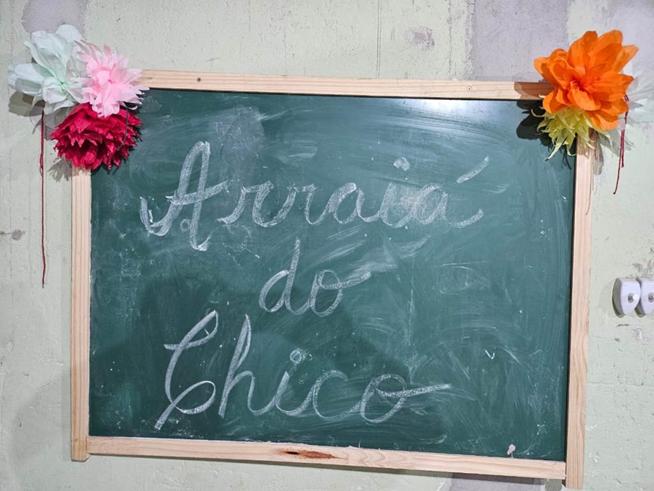 Arraiá
do
Chico